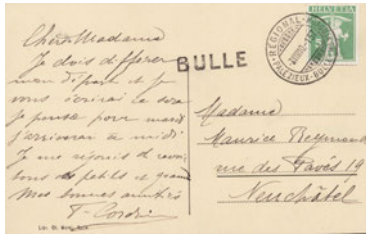 Chère Madame
Je dois différer
mon départ et je
vous écrirai ce soir
je pense pour mardi
j'arriverai à midi
Je me réjouis de revoir
tous petits et grands
Mes bonnes amitiés
BULLE
HELVETIA
REGIONAL
PALÉZIEUX-BULLE
Madame
Maurice Reymond
rue des Pavés 19
Neuchâtel